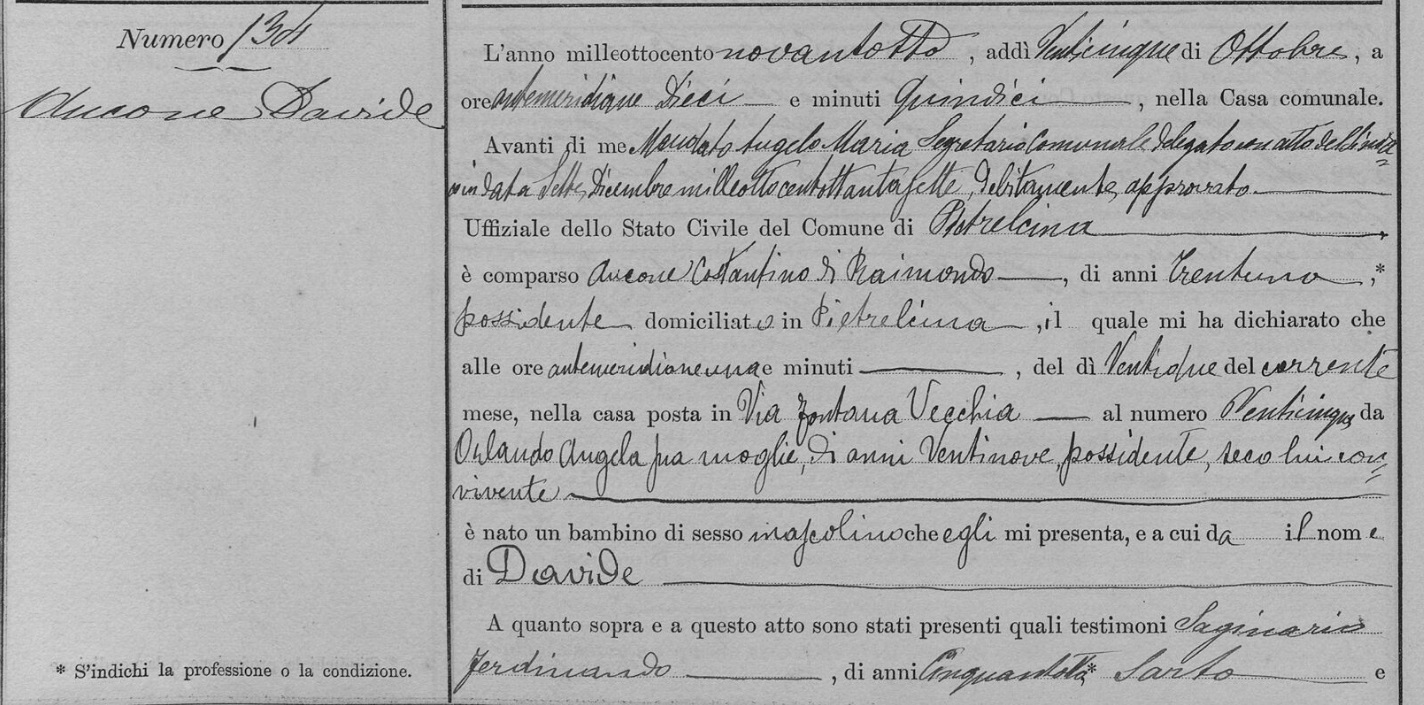 Numero 134
Aucone Davide
* S'indichi la professione o la condizione.
L'anno milleottocento novantotto, addì Venticinque di Ottobre, a
ore antemeridiane Dieci — e minuti Quindici —, nella Casa comunale.
Avanti di me Mandato Angelo Maria Segretario Comunale delegato con atto del Sinda=
co in data Sette Dicembre milleottocentottantasette, debitamente approvato —
Uffiziale dello Stato Civile del Comune di Pietrelcina —,
è comparso Aucone Costantino di Raimondo —, di anni trentuno, *
possidente domiciliato in Pietrelcina —, il quale mi ha dichiarato che
alle ore antemeridiane una e minuti —, del dì Ventidue del corrente
mese, nella casa posta in Via Fontana Vecchia — al numero Venticinque da
Orlando Angela sua moglie, di anni Ventinove, possidente, seco lui con=
vivente —
è nato un bambino di sesso mascolino che egli mi presenta, e a cui da il nome
di Davide —
A quanto sopra e a questo atto sono stati presenti quali testimoni Saginario
Ferdinando —, di anni Cinquantotto * Sarto — e